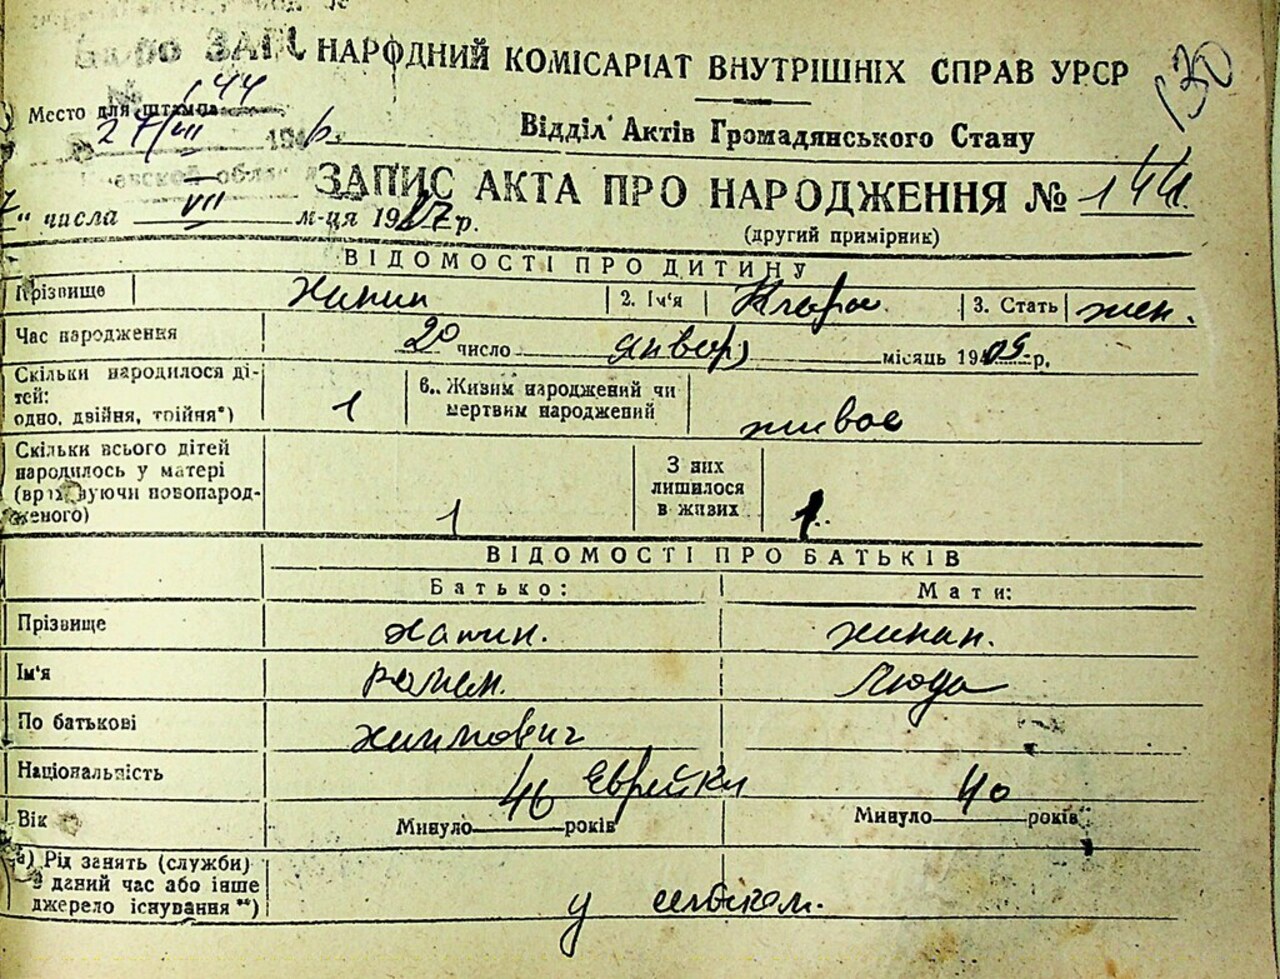 НАРОДНИЙ КОМІСАРІАТ ВНУТРІШНІХ СПРАВ УРСР
130
Место для штампа 144
27/VII 194
Відділ Актів Громадянського Стану
ЗАПИС АКТА ПРО НАРОДЖЕННЯ № 144
" числа VII м-ця 1947 р.
(другий примірник)
ВІДОМОСТІ ПРО ДИТИНУ
Прізвище 2. Ім'я Клара 3. Стать жен.
Час народження 20 число январ місяць 1905 р.
Скільки народилося ді-
тей:
одно, двійня, трійня*) 1 6. Живим народжений чи
мертвим народжений живое
Скільки всього дітей
народилось у матері
(враховуючи новонарод-
женого) 1 З них
лишилося
в живих 1
ВІДОМОСТІ ПРО БАТЬКІВ
Батько: Мати:
Прізвище
Ім'я Люда
По батькові Хаимович
Національність Еврейки
Вік Минуло 46 років Минуло 40 років
а) Рід занять (служби)
в даний час або інше
джерело існування **) у